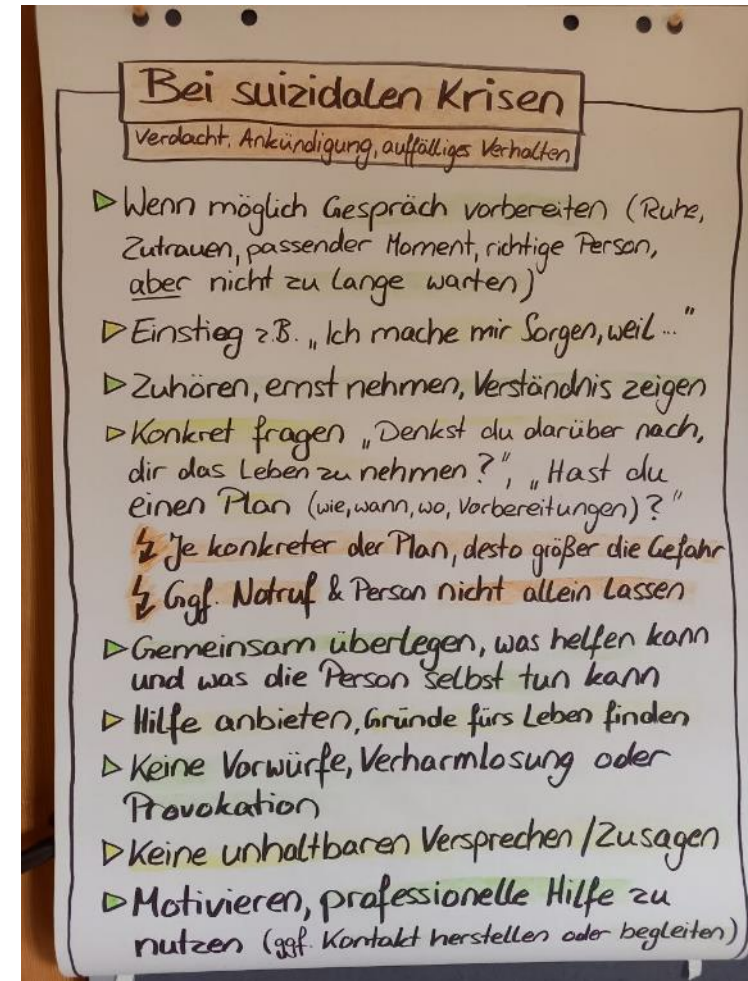 Bei suizidalen Krisen
Verdacht, Ankündigung, auffälliges Verhalten
▷ Wenn möglich Gespräch vorbereiten (Ruhe,
Zutrauen, passender Moment, richtige Person,
aber nicht zu lange warten)
▷ Einstieg z.B. „Ich mache mir Sorgen, weil ..."
▷ Zuhören, ernst nehmen, Verständnis zeigen
▷ Konkret fragen „Denkst du darüber nach,
dir das Leben zu nehmen?", „Hast du
einen Plan (wie, wann, wo, Vorbereitungen)?"
↯ Je konkreter der Plan, desto größer die Gefahr
↯ Ggf. Notruf & Person nicht allein lassen
▷ Gemeinsam überlegen, was helfen kann
und was die Person selbst tun kann
▷ Hilfe anbieten, Gründe fürs Leben finden
▷ Keine Vorwürfe, Verharmlosung oder
Provokation
▷ Keine unhaltbaren Versprechen / Zusagen
▷ Motivieren, professionelle Hilfe zu
nutzen (ggf. Kontakt herstellen oder begleiten)